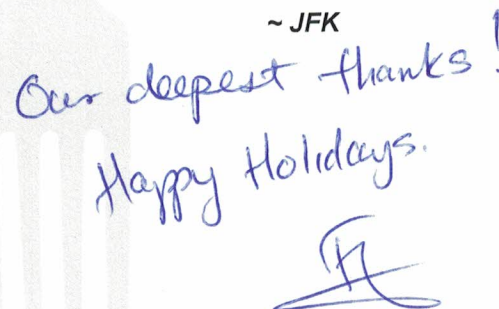 ~ JFK
Our deepest thanks!
Happy Holidays.